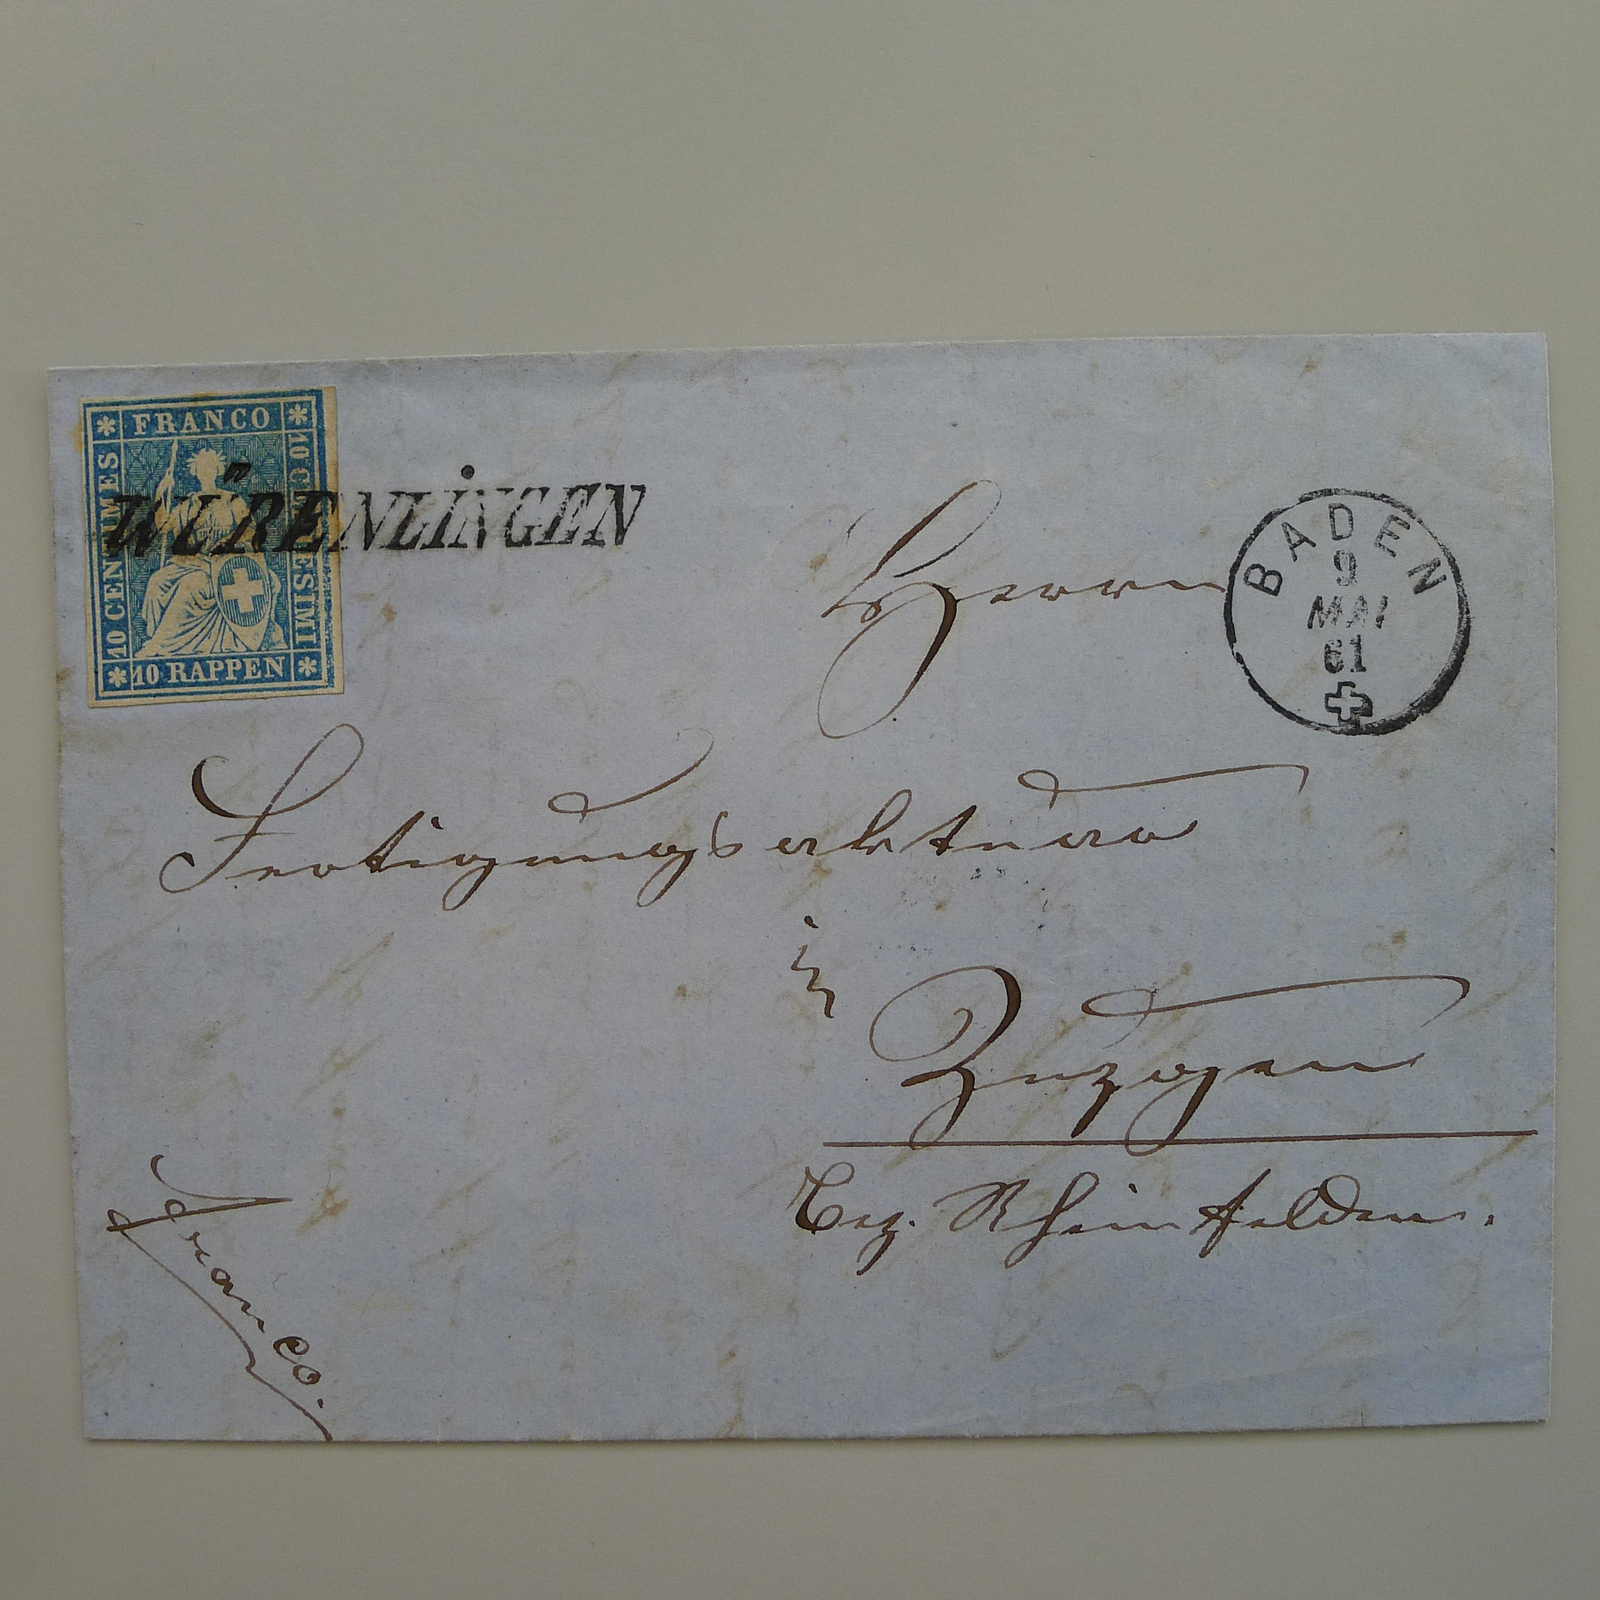 FRANCO
10 CENTIMES
10 CENTESIMI
10 RAPPEN
WÜRENLİNGEN
BADEN
9
MAI
61
Herrn
Fertigungsaktuar
in
Zuzgen
Bez. Rheinfelden.
franco.